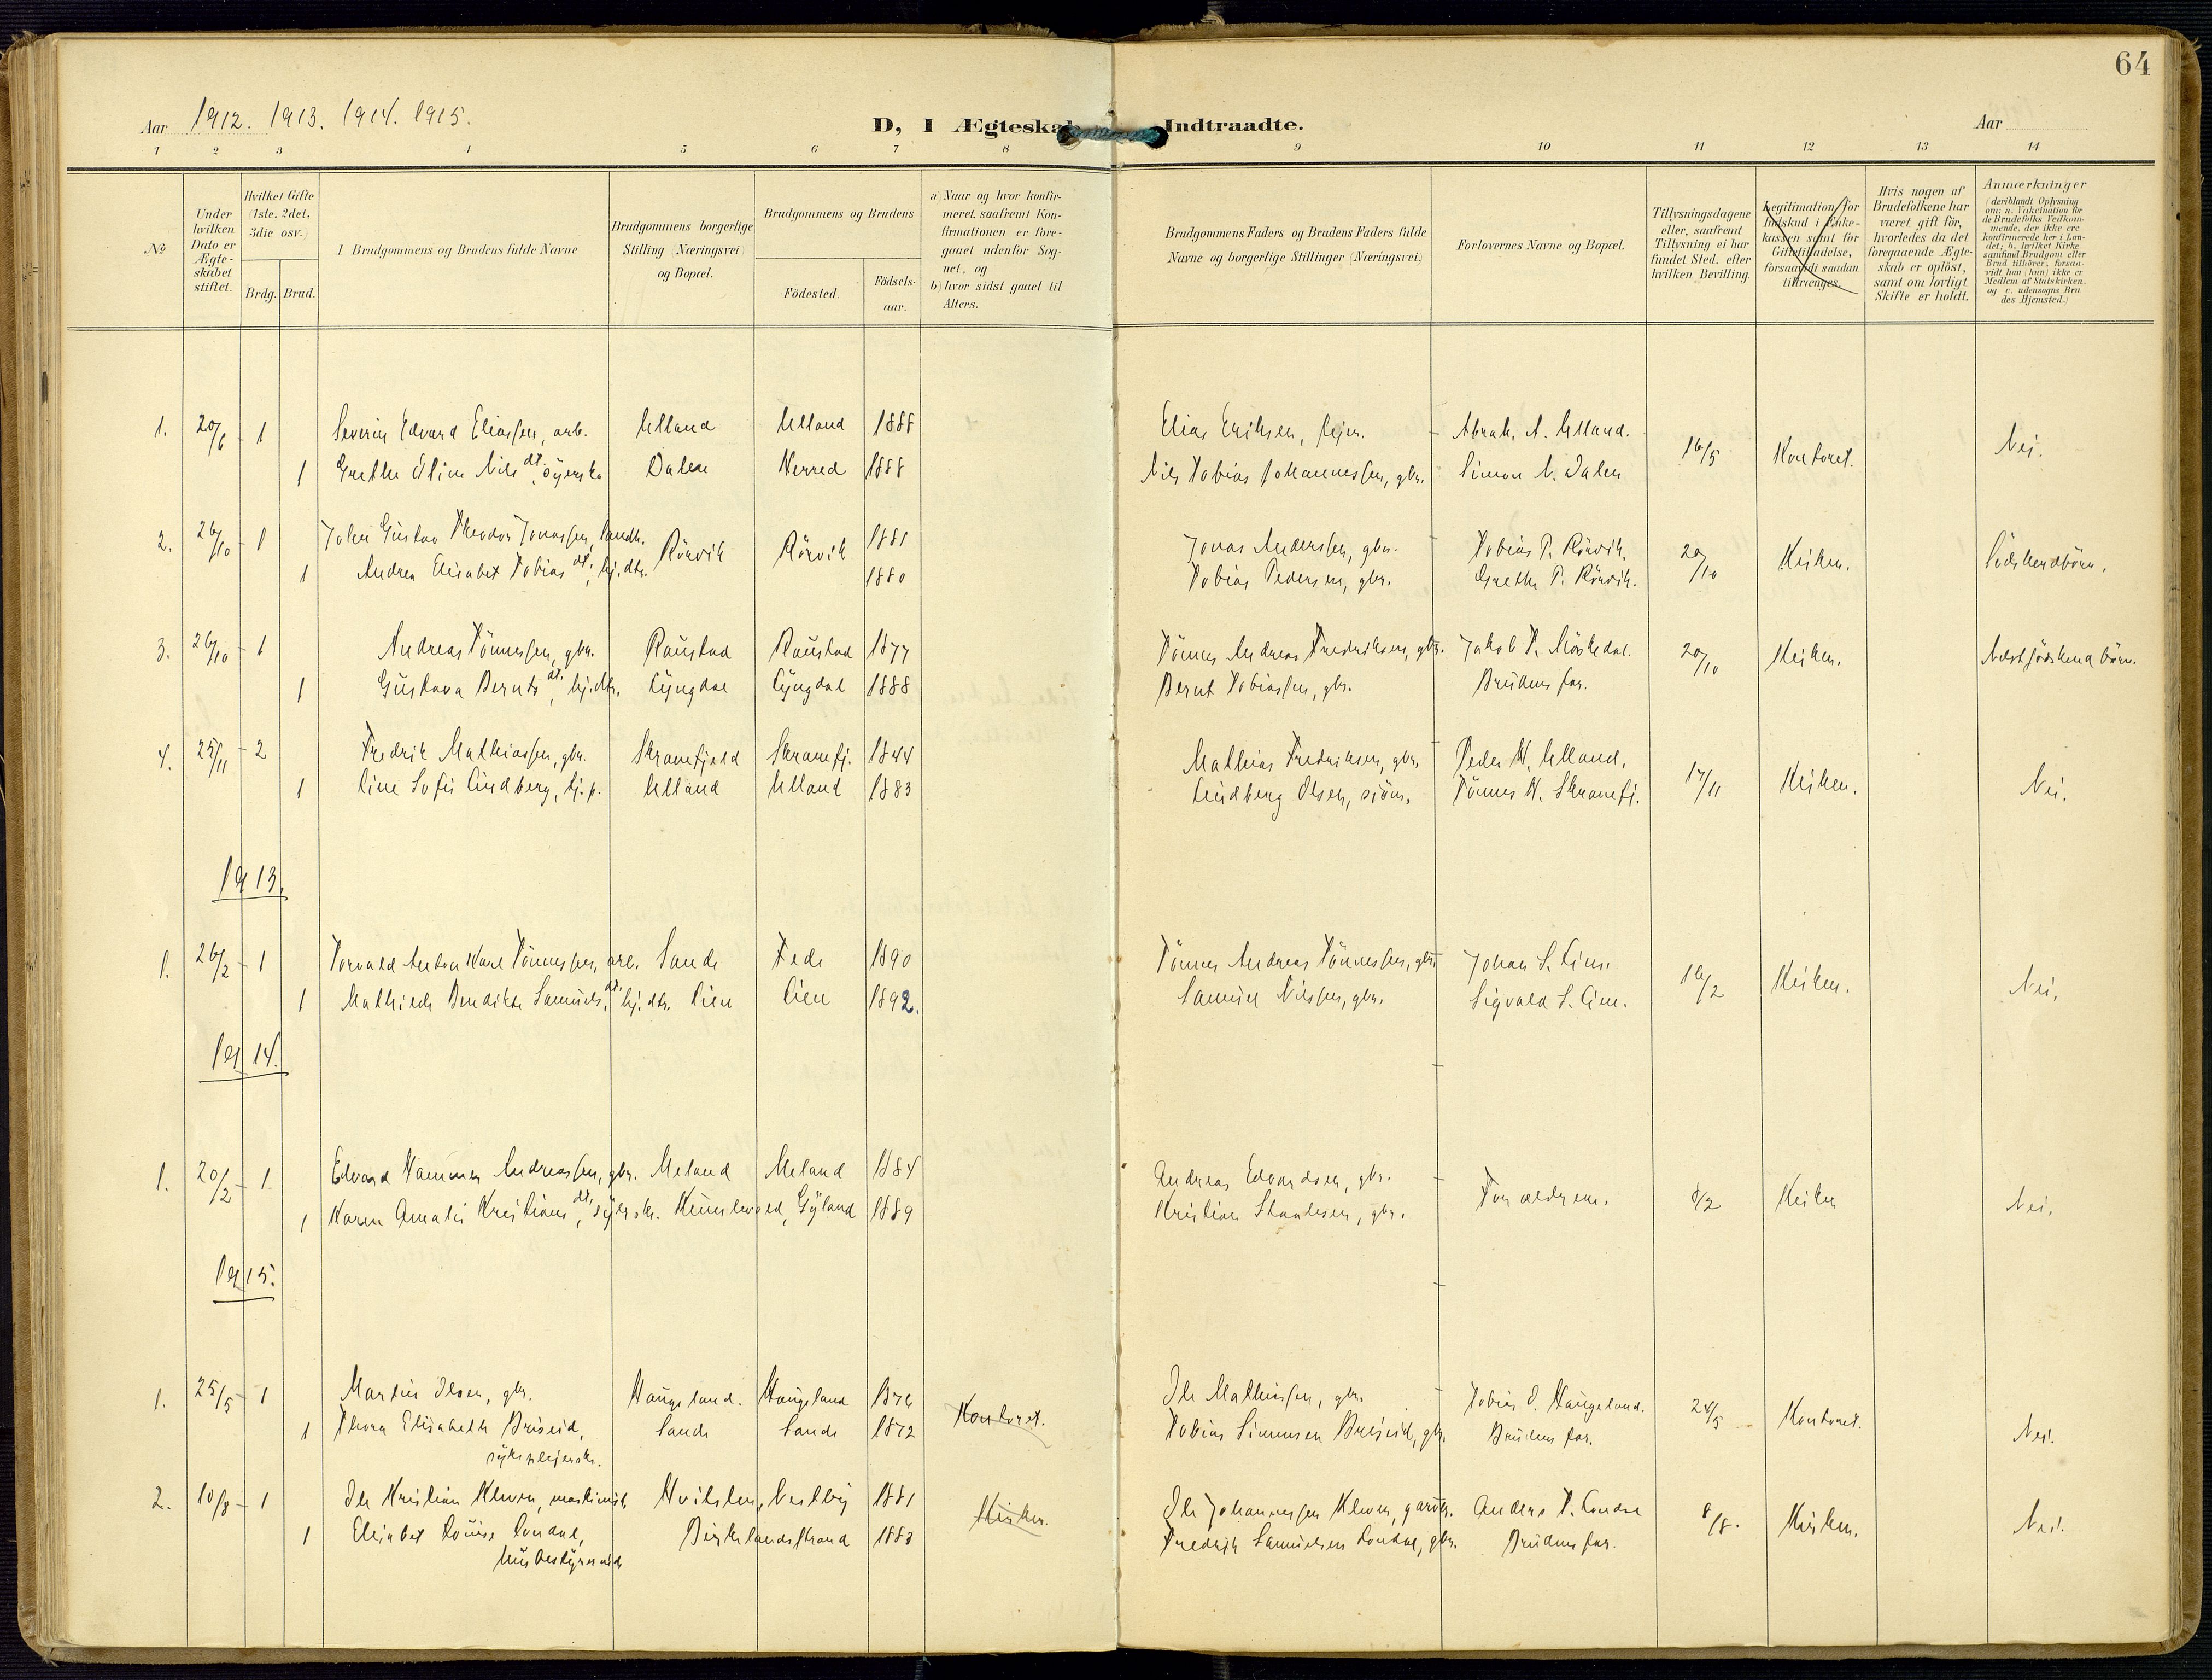 64
Aar 1912. 1913. 1914. 1915.
D, I Ægteskab Indtraadte.
Aar
1 2 3 4 5 6 7 8 9 10 11 12 13 14
№
Under hvilken Dato er Ægte-skabet stiftet.
Hvilket Gifte (1ste, 2det, 3die osv.)
Brdg. Brud.
Brudgommens og Brudens fulde Navne
Brudgommens borgerlige Stilling (Næringsvei) og Bopæl.
Brudgommens og Brudens
Födested.
Födsels-aar.
a) Naar og hvor konfir-
meret, saafremt Kon-
firmationen er fore-
gaaet udenfor Sog-
net, og
b) hvor sidst gaaet til
Alters.
Brudgommens Faders og Brudens Faders fulde
Navne og borgerlige Stillinger (Næringsvei)
Forlovernes Navne og Bopæl.
Tillysningsdagene
eller, saafremt
Tillysning ei har
fundet Sted, efter
hvilken Bevilling.
Legitimation for
Indskud i Enke-
kassen samt for
Giftetilladelse,
forsaavidt saadan
tiltrænges.
Hvis nogen af
Brudefolkene har
været gift för,
hvorledes da det
foregaaende Ægte-
skab er oplöst,
samt om lovligt
Skifte er holdt.
Anmærkninger
(deriblandt Oplysning
om: a. Vakcination for
de Brudefolks Vedkom-
mende, der ikke ere
konfirmerede her i Lan-
det; b. hvilket Kirke-
samfund Brudgom eller
Brud tilhörer, forsaa-
vidt han (hun) ikke er
Medlem af Statskirken,
og c. udensogns Bru-
des Hjemsted.)
1. 20/6 - 1 Severin Edvard Eliassen, arb. Ulland Ulland 1888 Elias Eriksen, Abrah. A. Ulland. 16/5 Kontoret. Nei.
1 Grethe Eline Nils dt. syerske Dalen Herred 1888 Nils Tobias Johannessen, gbr. Simon N. Dalen
2. 26/10 - 1 John Gustav Theodor Jonassen, landh. Rörvik Rörvik 1881 Jonas Anderssen, gbr. Tobias P. Rörvik. 20/10 Kirken. Södskendbörn.
1 Andrea Elisabet Tobias dt., hj. dtr. 1880 Tobias Pedersen, gbr. Grethe P. Rörvik.
3. 26/10 - 1 Andreas Tönnessen, gbr. Raustad Raustad 1877 Tönnes Andreas Fredriksen, gbr. Jakob T. 20/10 Kirken. Næstsödskend börn.
1 Gustava Bernts dt., hj. dtr. Lyngdal Lyngdal 1888 Bernt Tobiassen, gbr. Brudens far.
4. 25/11 - 2 Fredrik Mathiassen, gbr. Skranefjeld Skranefj. 1844 Mathias Fredriksen, gbr. Peder H. Ulland. 17/11 Kirken. Nei.
1 Line Sofie Lindberg, tj. p. Ulland Ulland 1883 Lindberg Olsen, sjöm. Tönnes H. Skranefj.
1913.
1. 26/2 - 1 Torvald Anton Karl Tönnessen, arb. Sande Fede 1890 Tönnes Andreas Tönnessen, gbr. Johan S. Lien. 16/2 Kirken. Nei.
1 Mathilde Bendikte Samuels dt. hj. dtr. Lien Lien 1892. Samuel Nilssen, gbr. Sigvald S. Lien.
1914.
1. 20/2 - 1 Edvard Hammer Andreassen, gbr. Meland Meland 1884 Andreas Edvardsen, gbr. Forældrene. 8/2 Kirken Nei.
1 Karen Amalie Kristians dt., sykersk. Gyland 1889 Kristian gbr.
1915.
1. 25/5 - 1 Martin Olsen, gbr. Haugeland. Haugeland 1876 Kontoret. Ole Mathiassen, gbr. Tobias O. Haugeland. 24/5 Kontoret. Nei.
1 Thora Elisabeth Briseid, Sande Sande 1872 Tobias Simonsen Briseid, gbr. Brudens far.
sykepleierske.
2. 10/8 - 1 Ole Kristian Kleven, maskinist Hvitsten, Vestby 1881 Kirken. Ole Johannessen Kleven, Anders T. Londal 8/8. Kirken. Nei.
1 Elisabet Louise Londal, Birkelandsstrand 1883 Fredrik Samuelsen Londal, gbr. Brudens far.
husbestyrerinde